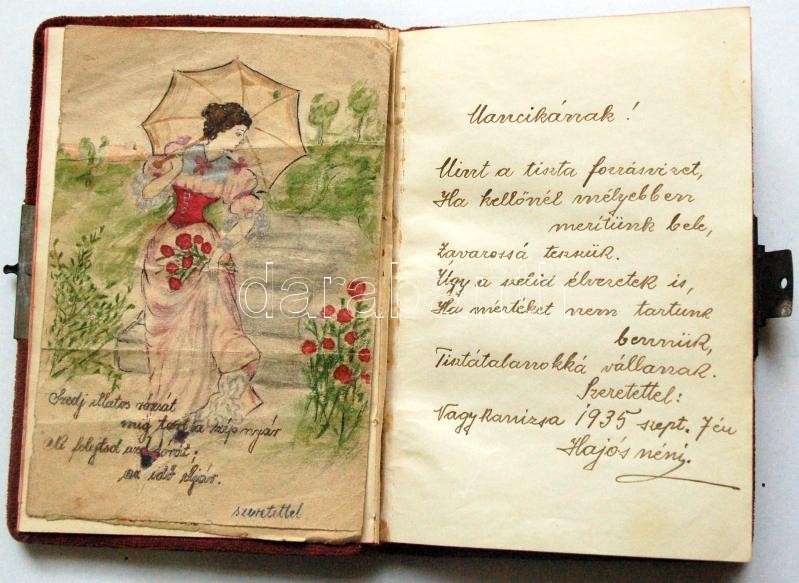 Szedj illatos rózsát
míg tart a szép nyár
Ne felejtsd
az idő eljár.
szeretettel
Mancikának!
Mint a tiszta forrásvizet,
Ha kellőnél mélyebben
merítünk bele,
Zavarossá tesszük.
Úgy a szelid élvezetek is,
Ha mértéket nem tartunk
bennük,
Tisztátalanokká vállanak.
Szeretettel:
Nagykanizsa 1935 szept. 7én
Hajós néni.
darabanth